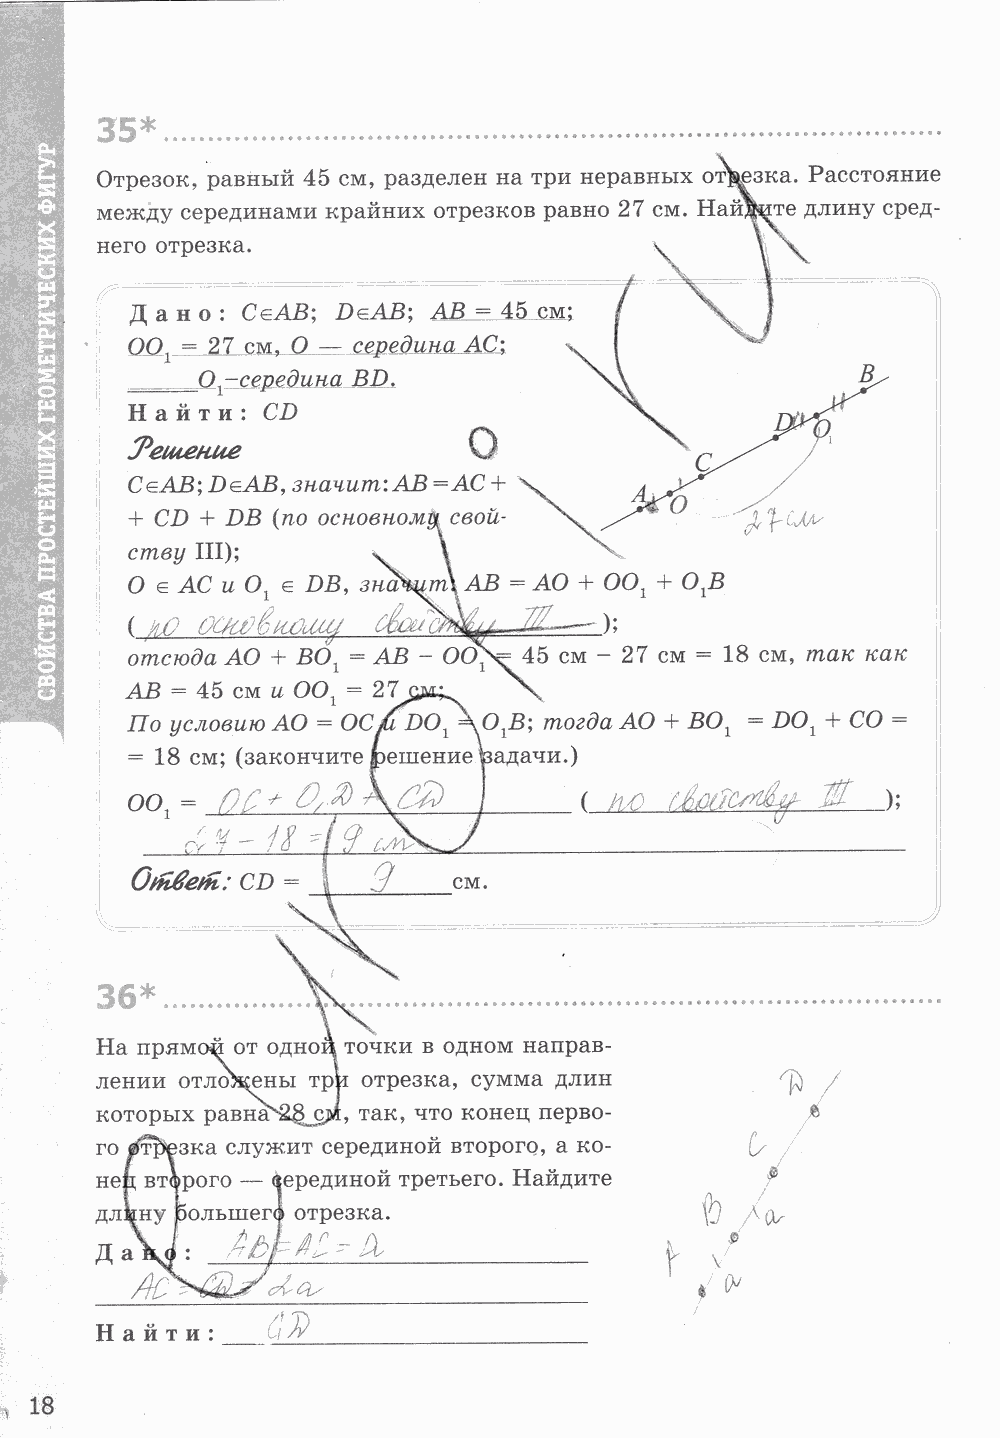 СВОЙСТВА ПРОСТЕЙШИХ ГЕОМЕТРИЧЕСКИХ ФИГУР
35*
Отрезок, равный 45 см, разделен на три неравных отрезка. Расстояние
между серединами крайних отрезков равно 27 см. Найдите длину сред-
него отрезка.
Дано: C∈AB; D∈AB; AB = 45 см;
OO₁ = 27 см, O — середина AC;
O₁–середина BD.
Найти: CD
Решение
C∈AB; D∈AB, значит: AB = AC +
+ CD + DB (по основному свой-
ству III);
O ∈ AC и O₁ ∈ DB, значит: AB = AO + OO₁ + O₁B
(по основному свойству III);
отсюда AO + BO₁ = AB – OO₁ = 45 см – 27 см = 18 см, так как
AB = 45 см и OO₁ = 27 см;
По условию AO = OC и DO₁ = O₁B; тогда AO + BO₁ = DO₁ + CO =
= 18 см; (закончите решение задачи.)
OO₁ = OC + O₁D + CD (по свойству III);
27 – 18 = 9 см
Ответ: CD = 9 см.
B
D
O₁
C
A
O
27 см
36*
На прямой от одной точки в одном направ-
лении отложены три отрезка, сумма длин
которых равна 28 см, так, что конец перво-
го отрезка служит серединой второго, а ко-
нец второго — серединой третьего. Найдите
длину большего отрезка.
Дано: AB = AC = a
AC = CD = 2a
Найти: CD
D
C
B
a
A
a
18